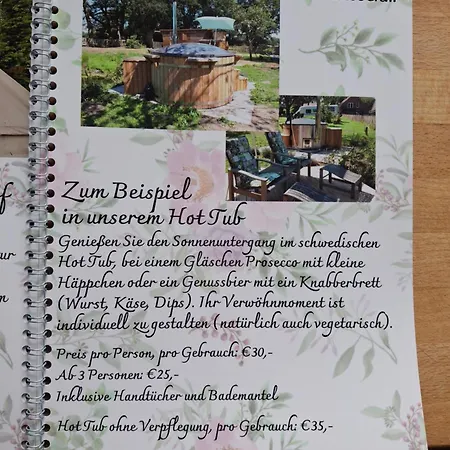 Zum Beispiel
in unserem Hot Tub
Genießen Sie den Sonnenuntergang im schwedischen
Hot Tub, bei einem Gläschen Prosecco mit kleine
Häppchen oder ein Genussbier mit ein Knabberbrett
(Wurst, Käse, Dips). Ihr Verwöhnmoment ist
individuell zu gestalten (natürlich auch vegetarisch).
Preis pro Person, pro Gebrauch: €30,-
Ab 3 Personen: €25,-
Inklusive Handtücher und Bademantel
Hot Tub ohne Verpflegung, pro Gebrauch: €35,-